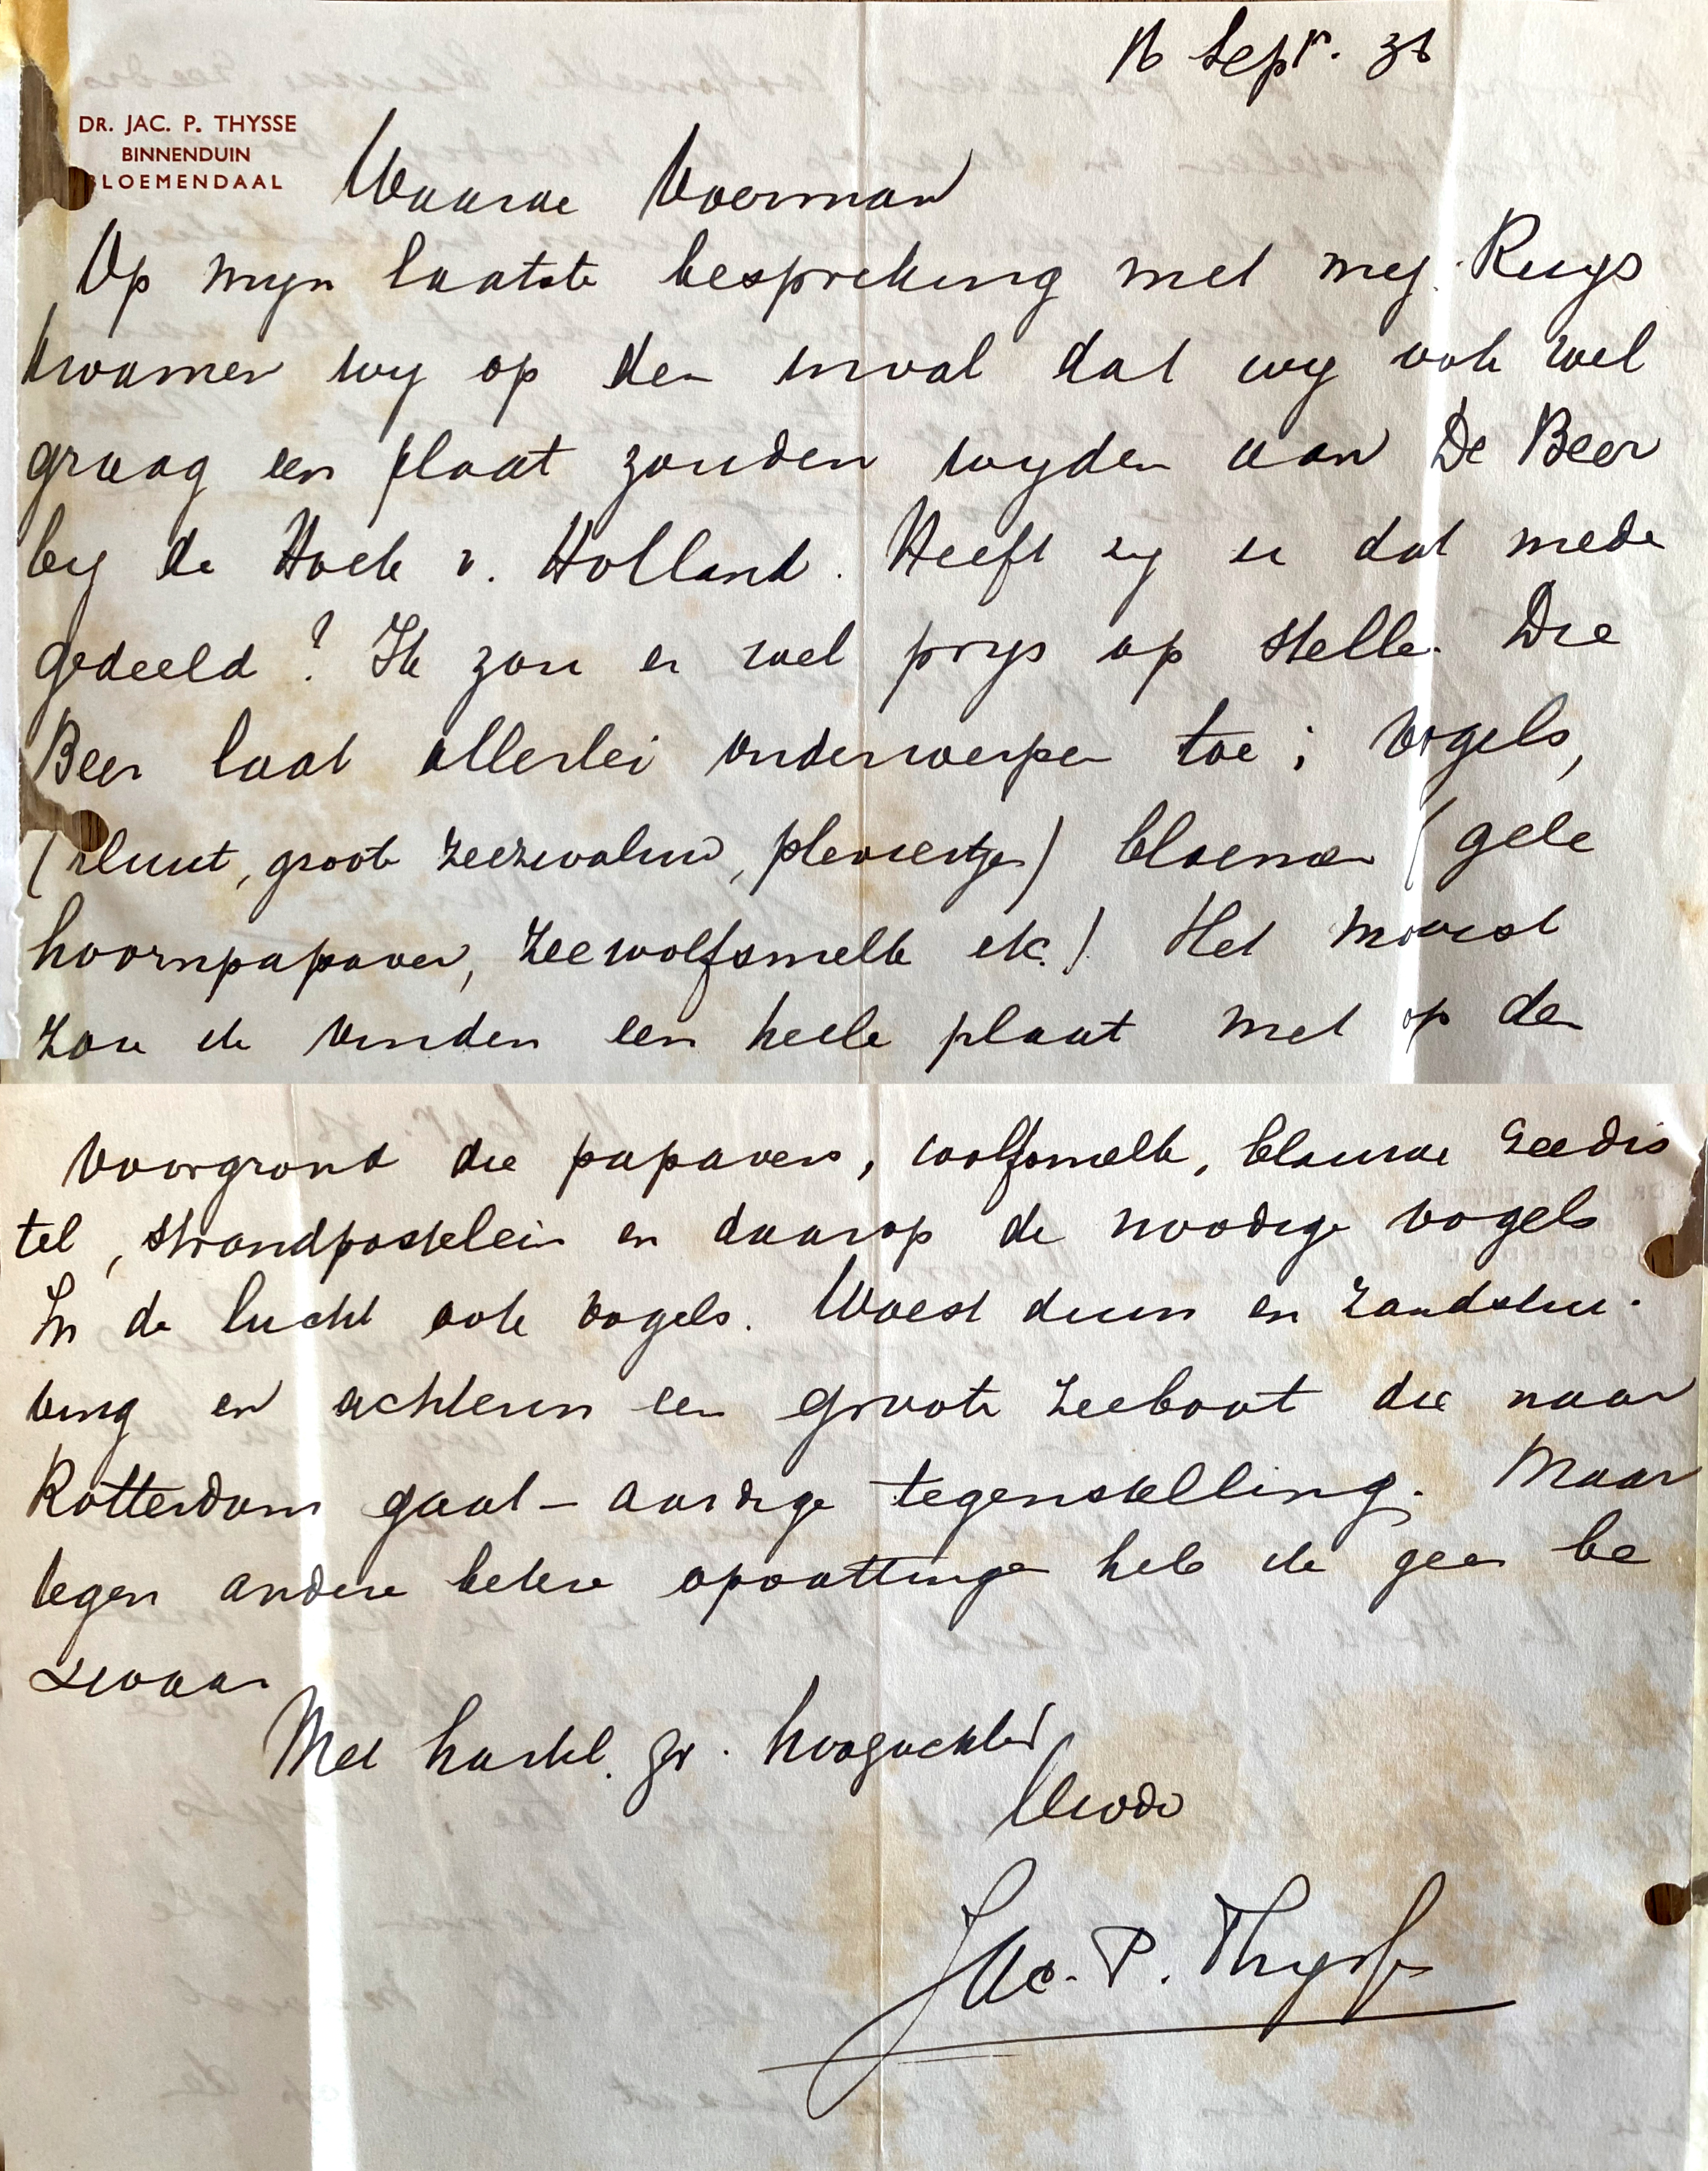 16 Sept. 36
DR. JAC. P. THYSSE
BINNENDUIN
BLOEMENDAAL
Waarde Voerman
Op myn laatste bespreking met mej. Ruys
kwamen wy op den inval dat wy ook wel
graag een plaat zouden wyden aan De Beer
by de Hoek v. Holland. Heeft zy u dat mede
gedeeld? Ik zou er wel prys op stellen. Die
Beer laat allerlei onderwerpen toe; vogels,
(kluut, groote zeezwaluw, pleviertjes) bloemen (gele
hoornpapaver, zeewolfsmelk etc.) Het mooist
zou ik vinden een heele plaat met op den
voorgrond die papavers, wolfsmelk, blauwe zeedis
tel, strandpostelein en daarop de noodige vogels
In de lucht ook vogels. Woest duin en zandstui-
ving en achterin een groote zeeboot die naar
Rotterdam gaat – aardige tegenstelling. Maar
tegen andere betere opvattingen heb ik geen be
zwaar
Met hartel. gr. hoogachtend
Uwdw
Jac. P. Thysse